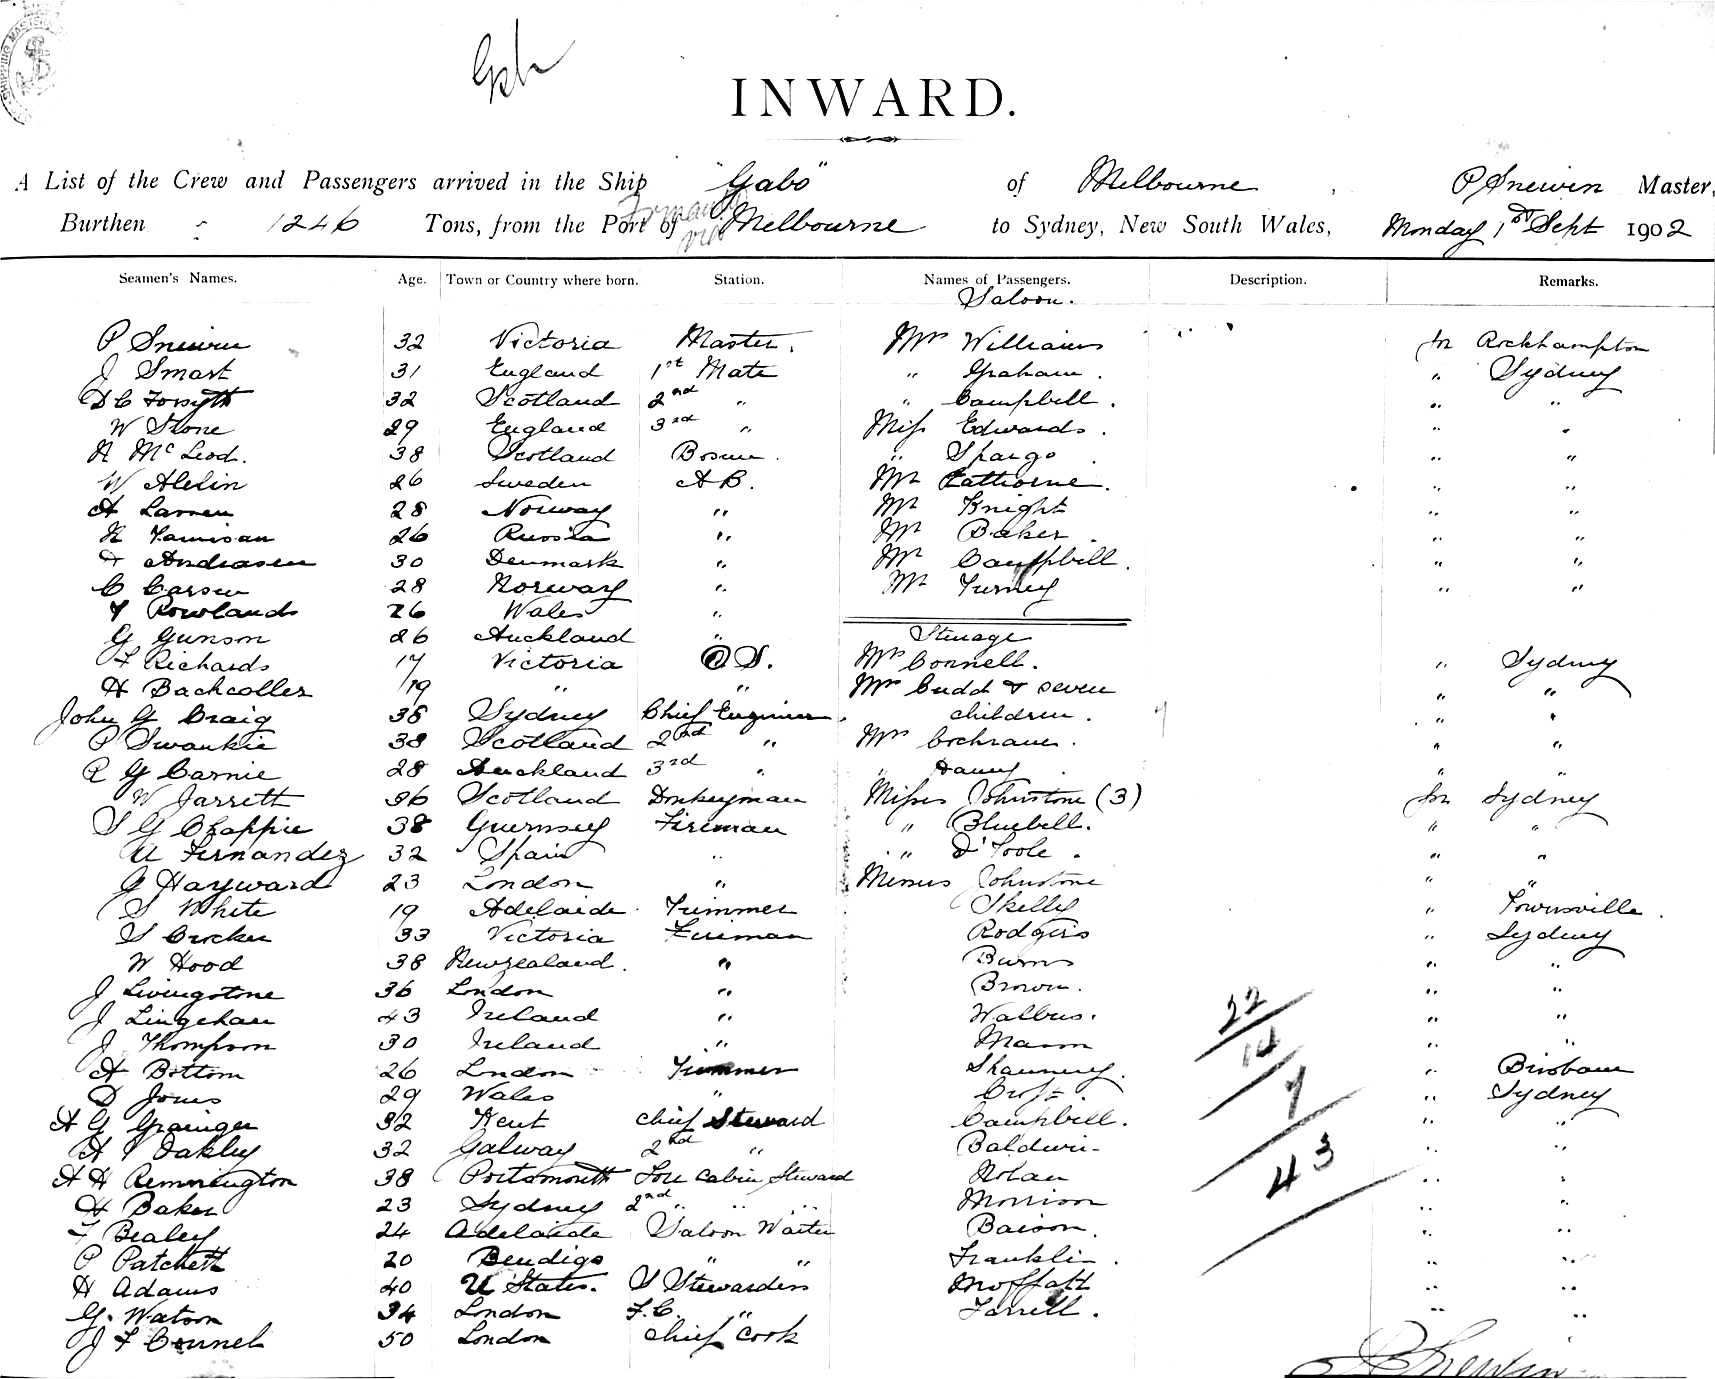 INWARD.
A List of the Crew and Passengers arrived in the Ship "Gabo" of Melbourne, P Snewin Master,
Burthen 1246 Tons, from the Port of via Melbourne to Sydney, New South Wales, Monday 1st Sept 1902
Seamen's Names. Age. Town or Country where born. Station. Names of Passengers. Description. Remarks.
Saloon.
P Snewin 32 Victoria Master. Mrs Williams for Rockhampton
J Smart 31 England 1st Mate " Graham. " Sydney
D C Forsyth 32 Scotland 2nd " " Campbell. " "
W Stone 29 England 3rd " Miss Edwards. " "
N McLeod. 38 Scotland Bosun. " Spargo. " "
W Alelin 26 Sweden A B. Mr Eathorne. " "
A Larsen 28 Norway " Mr Knight " "
K Tamisan 26 Russia " Mr Baker. " "
A Andreasen 30 Denmark " Mr Campbell. " "
C Carsen 28 Norway " Mr Turney " "
Y Rowlands 26 Wales "
G Gunson 26 Auckland " Steerage
F Richards 17 Victoria O S. Mrs Connell. " Sydney
H Backcoller 19 " " Mrs Cudd & seven " "
John G Craig 38 Sydney Chief Engineer. children. " "
P Swankie 38 Scotland 2nd " Mrs Cochrane. " "
R G Carnie 28 Auckland 3rd " " Hanny. " "
W Jarrett 36 Scotland Donkeyman Misses Johnstone (3) for Sydney
S G Chappie 38 Guernsey Fireman " Bluebell. " "
U Fernandez 32 Spain " " O'Toole. " "
G Hayward 23 London " Messrs Johnstone " "
S White 19 Adelaide. Trimmer Skelly " Townsville.
S Crocker 33 Victoria Fireman Rodgers " Sydney
W Hood 38 Newzealand. " Burns " "
J Livingstone 36 London " Brown. " "
J Lingehan 43 Ireland " Walbus. " "
22
J Thompson 30 Ireland " Mann " "
14
A Bottom 26 London Trimmer Shannery. " Brisbane
7
D Jones 29 Wales " Croft. " Sydney
A G Grainger 32 Kent Chief Steward Campbell. " "
43
H J Oakley 32 Galway 2nd " Baldwin " "
A H Remmington 38 Portsmouth Fore Cabin Steward Nolan " "
H Baker 23 Sydney 2nd " " " Morrison " "
F Bealey 24 Adelaide Saloon Waiter Baison. " "
P Patchett 20 Bendigo " " Franklin. " "
H Adams 40 U States. S Stewardess Moffatt " "
G. Watson 34 London F.C. " Farrell. " "
J F Connel 50 London Chief Cook "
P Snewin